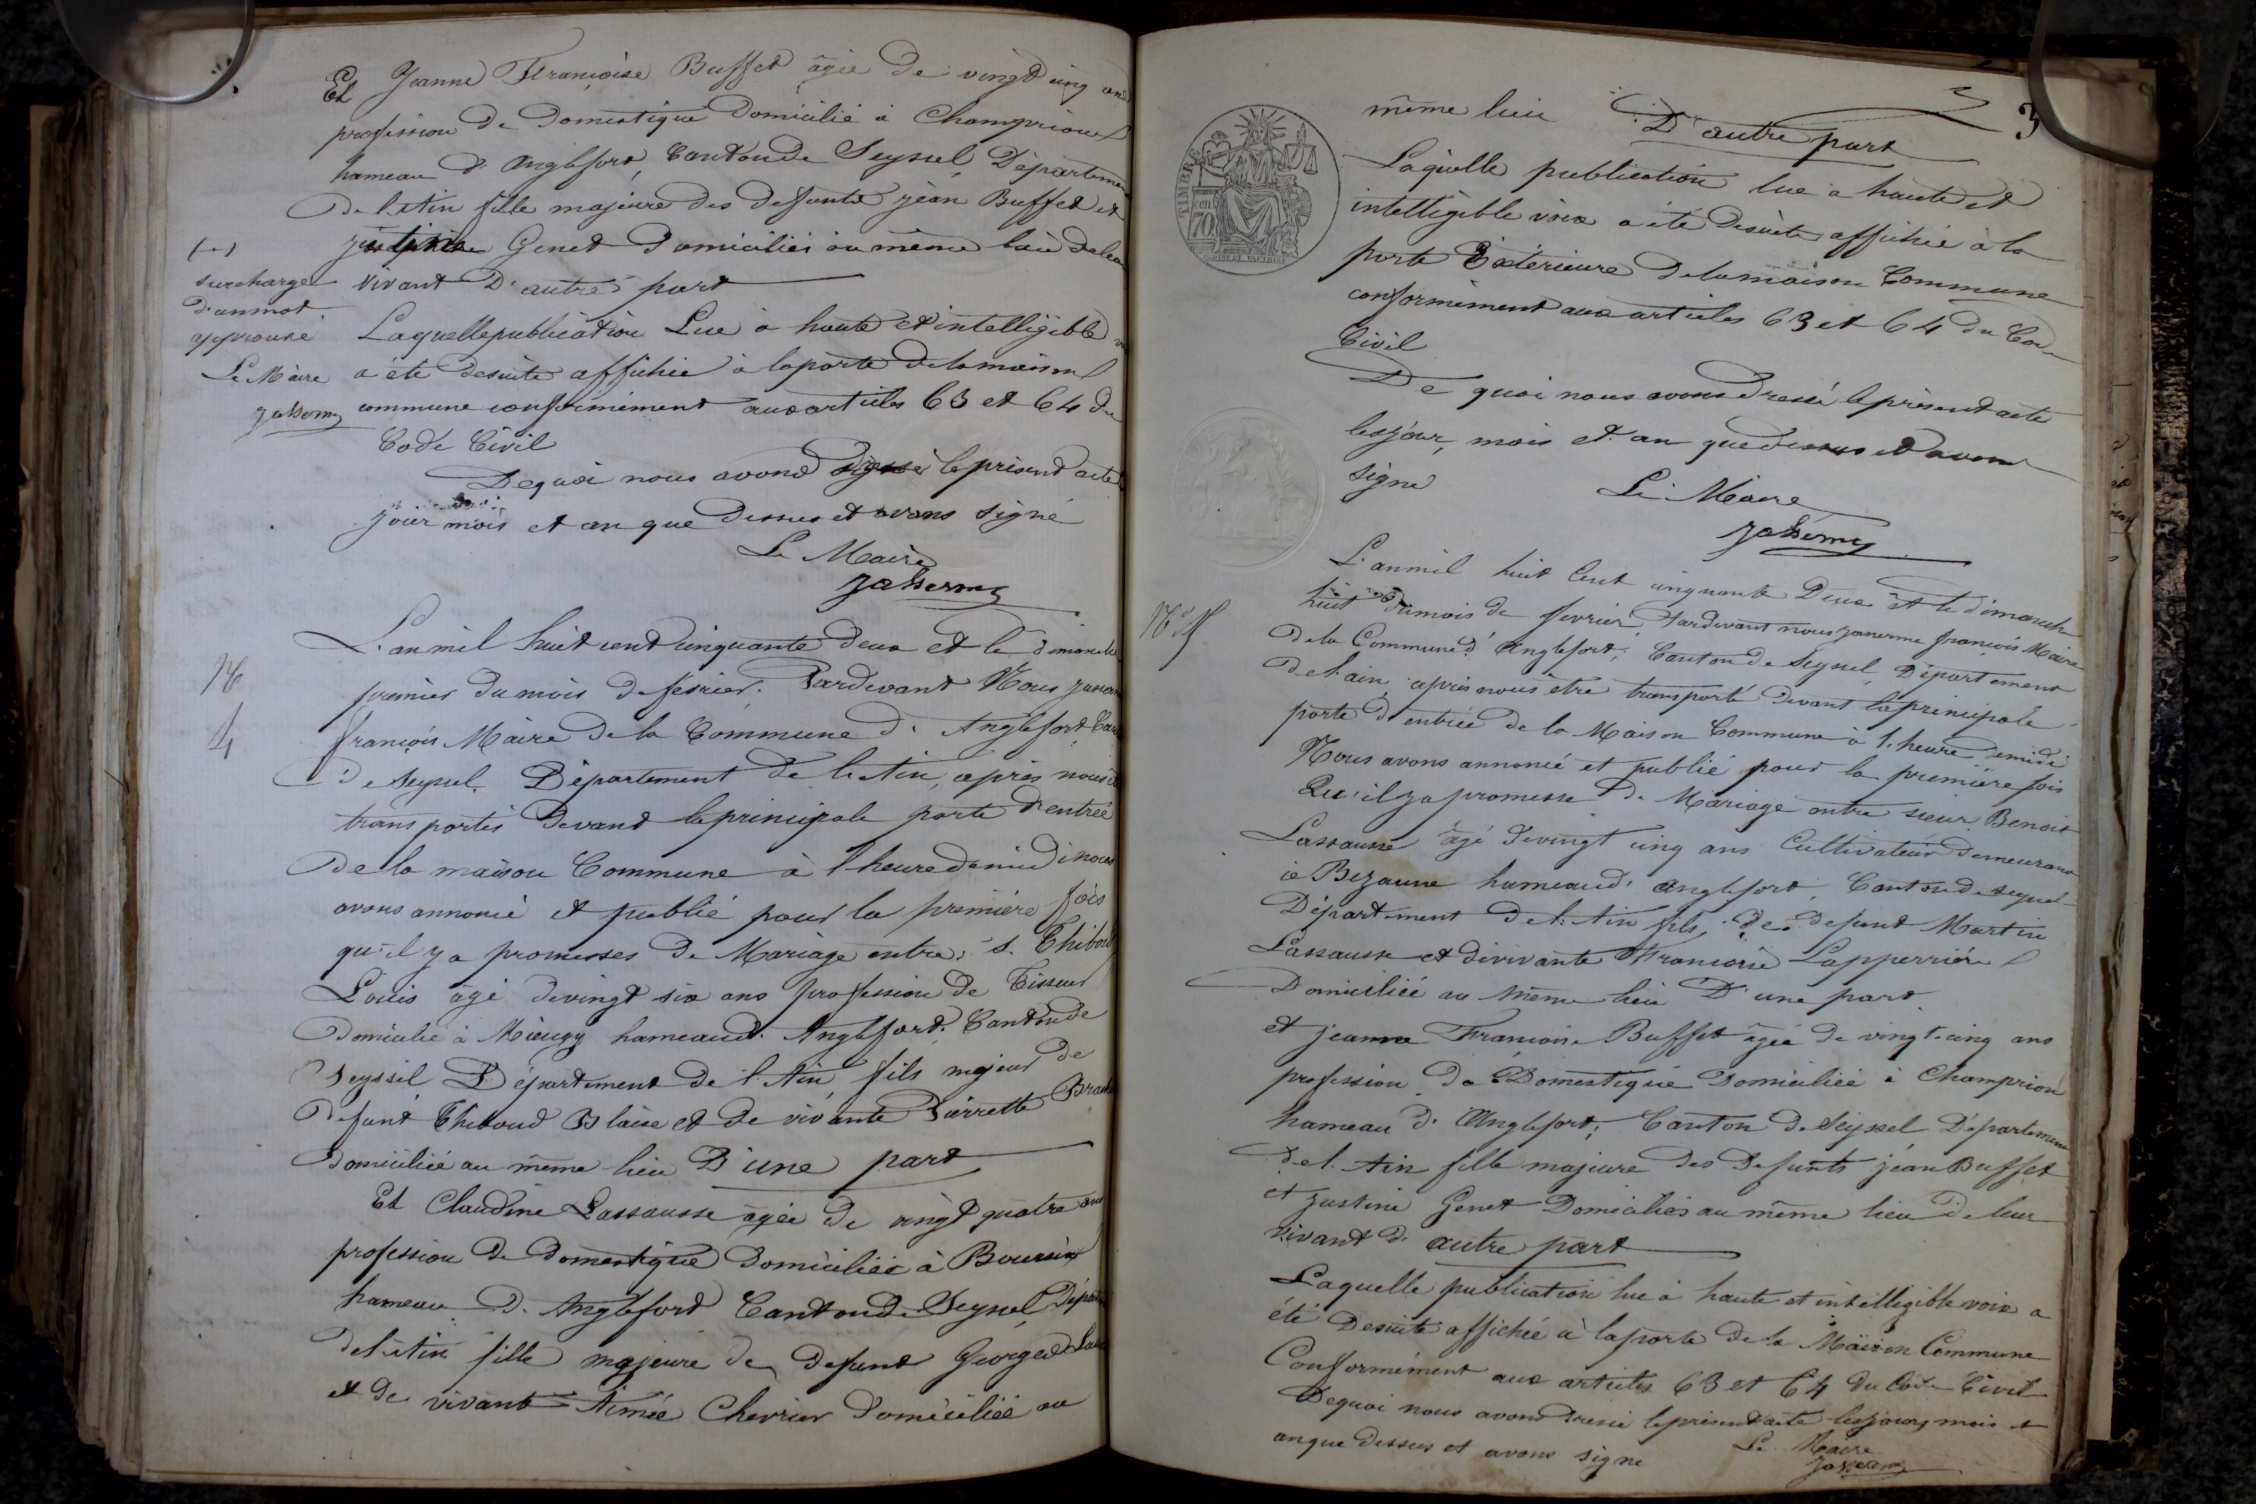 Et Jeanne Françoise Buffet âgée de vingt cinq ans
profession de Domestique Domicilié à Champriond
hameau d'Anglefort, Canton de Seyssel, Département
De l'Ain fille majeure des defunts jean Buffet et
justine Genet Domiciliés au même lieu de leur
(-)
surcharge
d'un mot
approuvé
Le Maire
vivant D'autre part
Laquelle publication Lue à haute et intelligible
a été desuite affichée à la porte de la maison
commune conformément aux articles 63 et 64 du
Code Civil
De quoi nous avons dressé le présent acte
jour mois et an que dessus et avons signé
Le Maire
N°
4
L'an mil huit cent cinquante deux et le dimanche
premier du mois de février. Pardevant Nous
françois Maire de la Commune d'Anglefort
De Seyssel, Département de l'Ain, après nous
transportés devant la principale porte d'entrée
De la maison Commune à l'heure de midi nous
avons annoncé et publié pour la première fois
qu'il y a promesses de Mariage entre s. Thiboud
Louis âgé de vingt six ans profession de Tisseur
Domicilié à Mieugy hameau d'Anglefort. Canton de
Seyssel Département de l'Ain fils majeur de
Defunt Thiboud Blaise et de vivante Pierrette
Domiciliée au même lieu D'une part
Et Claudine Lassausse âgée de vingt quatre ans
profession de Domestique Domiciliée à Boursin
hameau D'Anglefort Canton de Seyssel,
de l'Ain fille majeure de defunt George
et de vivante Aimée Chevrier Domiciliée au
3
même lieu D'autre part
TIMBRE
Laquelle publication lue a haute et
intelligible voix a été Desuite affichée à la
porte Extérieure De la maison Commune
conformément aux articles 63 et 64 du Code
Civil
De quoi nous avons Dressé le présent acte
les jour, mois et an que dessus et avons
signé
Le Maire
N° 5
L'an mil huit Cent cinquante Deux et le dimanche
huit du mois de fevrier Pardevant nous françois Maire
De la Commune d'Anglefort, Canton de Seyssel, Département
de l'ain, après nous être transporté devant la principale
porte d'entrée de la Maison Commune à l'heure de midi
Nous avons annoncé et publié pour la première fois
Qu'il y a promesse de Mariage entre sieur Benoit
Lassausse âgé de vingt cinq ans Cultivateur Demeurant
à Bezaune hameau d'Anglefort, Canton de Seyssel
Département de l'Ain fils, de defunt Martin
Lassausse et de vivante Françoise Lapperrière
Domiciliée au même lieu D'une part
et jeanne Françoise Buffet âgée de vingt-cinq ans
profession de Domestique Domiciliée à Champriond
hameau d'Anglefort, Canton de Seyssel Département
de l'Ain fille majeure des Defunts jean Buffet
et justine Genet Domiciliés au même lieu de leur
vivant d'autre part
Laquelle publication lue à haute et intelligible voix a
été Desuite affichée à la porte de la Maison Commune
Conformément aux articles 63 et 64 du Code Civil
De quoi nous avons dressé le présent acte les jours mois et
an que dessus et avons signé Le Maire